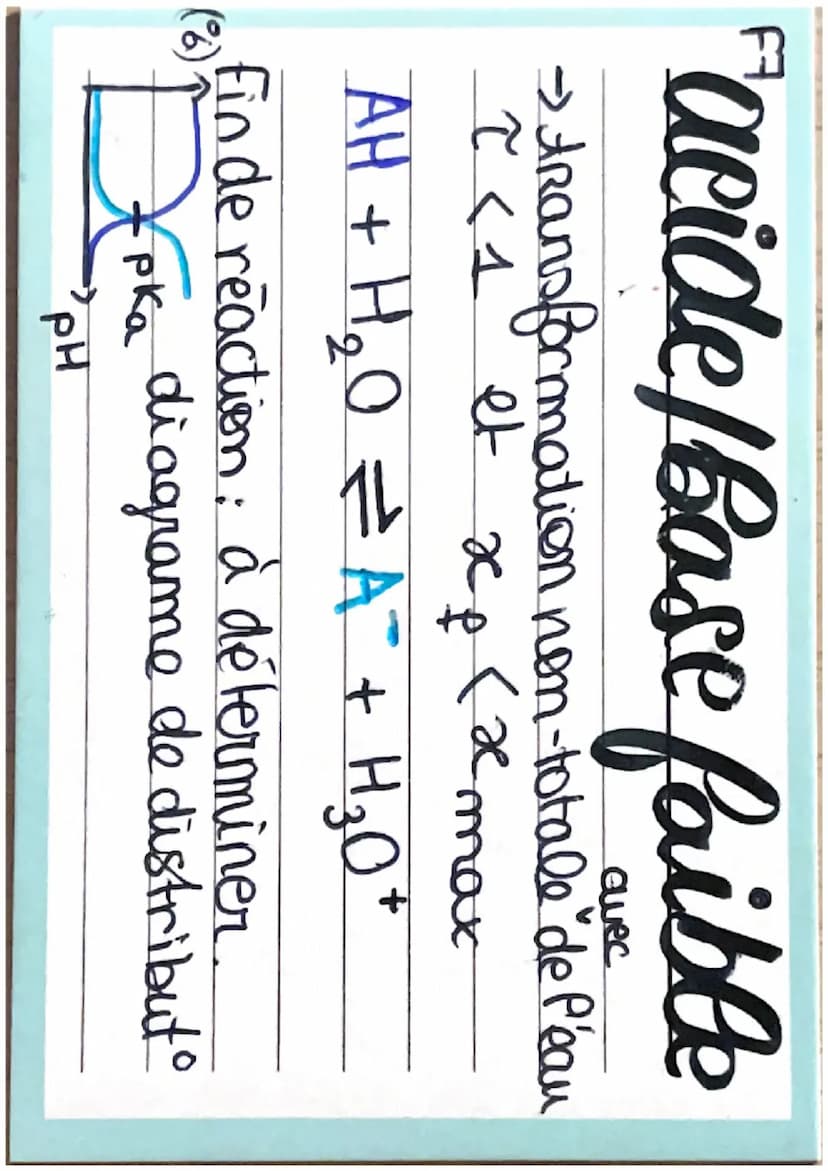 F7
acide/base faible
avec
→ transformation non-totale ˇ de l'eau
τ < 1 et xf < xmax
AH + H₂O ⇌ A⁻ + H₃O⁺
Fin de réaction : à déterminer.
(%)
pKa
diagramme de distribut°
pH